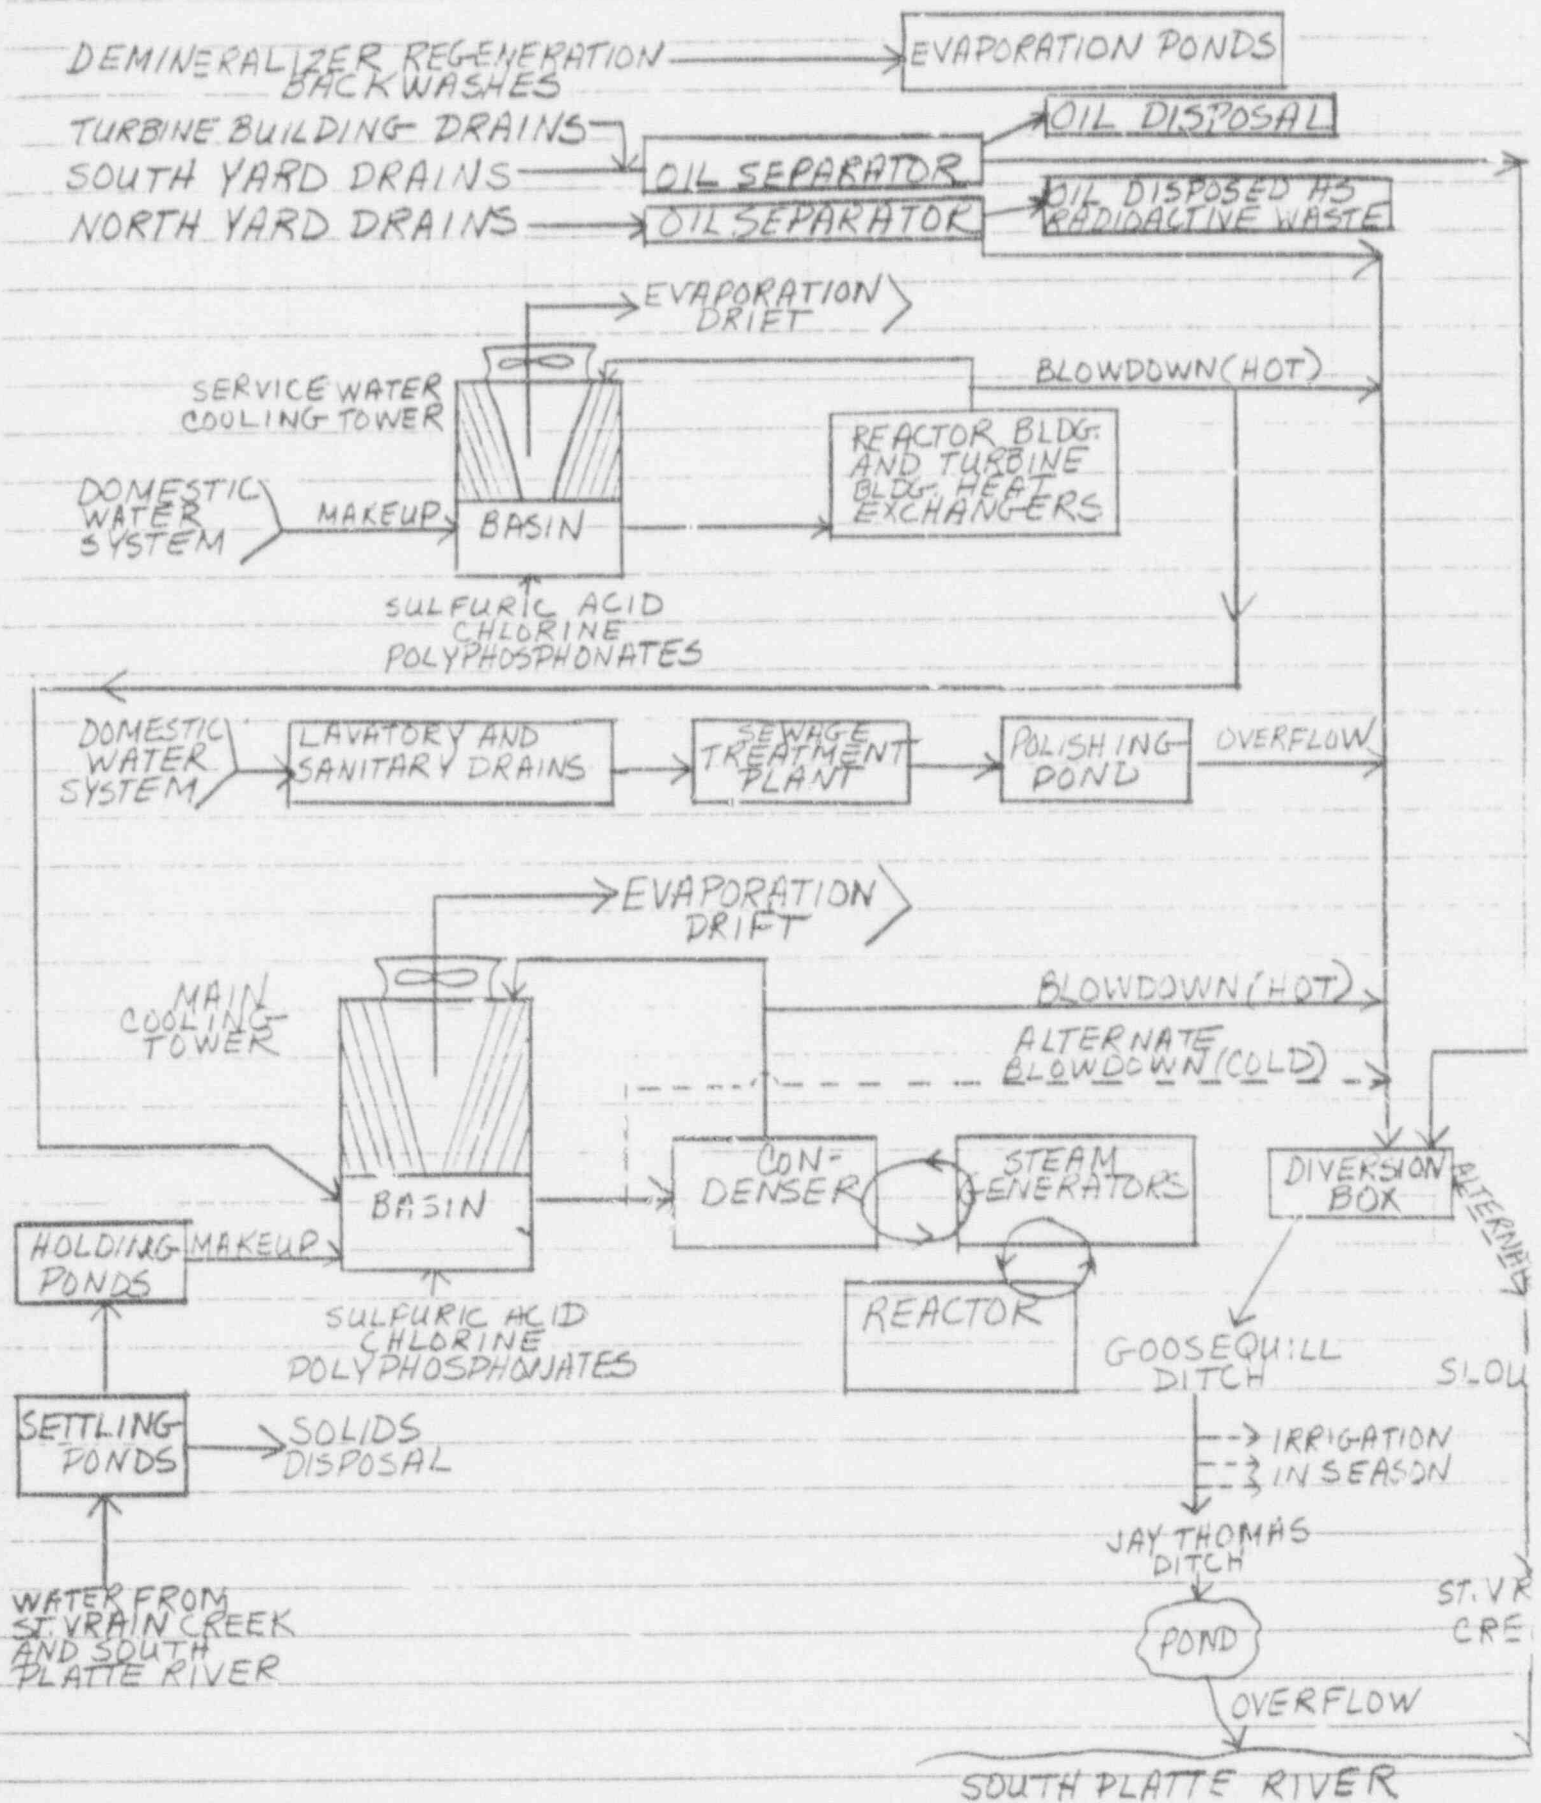 DEMINERALIZER REGENERATION
BACKWASHES
EVAPORATION PONDS
TURBINE BUILDING DRAINS
OIL DISPOSAL
SOUTH YARD DRAINS
OIL SEPARATOR
NORTH YARD DRAINS
OIL SEPARATOR
OIL DISPOSED AS
RADIOACTIVE WASTE
EVAPORATION
DRIFT
SERVICE WATER
COOLING TOWER
BLOWDOWN (HOT)
REACTOR BLDG.
AND TURBINE
BLDG. HEAT
EXCHANGERS
DOMESTIC
WATER
SYSTEM
MAKEUP
BASIN
SULFURIC ACID
CHLORINE
POLYPHOSPHONATES
DOMESTIC
WATER
SYSTEM
LAVATORY AND
SANITARY DRAINS
SEWAGE
TREATMENT
PLANT
POLISHING
POND
OVERFLOW
EVAPORATION
DRIFT
MAIN
COOLING
TOWER
BLOWDOWN (HOT)
ALTERNATE
BLOWDOWN (COLD)
CON-
DENSER
STEAM
GENERATORS
DIVERSION
BOX
BASIN
HOLDING
PONDS
MAKEUP
SULFURIC ACID
CHLORINE
POLYPHOSPHONATES
REACTOR
GOOSEQUILL
DITCH
SLOU
SETTLING
PONDS
SOLIDS
DISPOSAL
IRRIGATION
IN SEASON
JAY THOMAS
DITCH
WATER FROM
ST. VRAIN CREEK
AND SOUTH
PLATTE RIVER
ST. VR
CRE
POND
OVERFLOW
SOUTH PLATTE RIVER